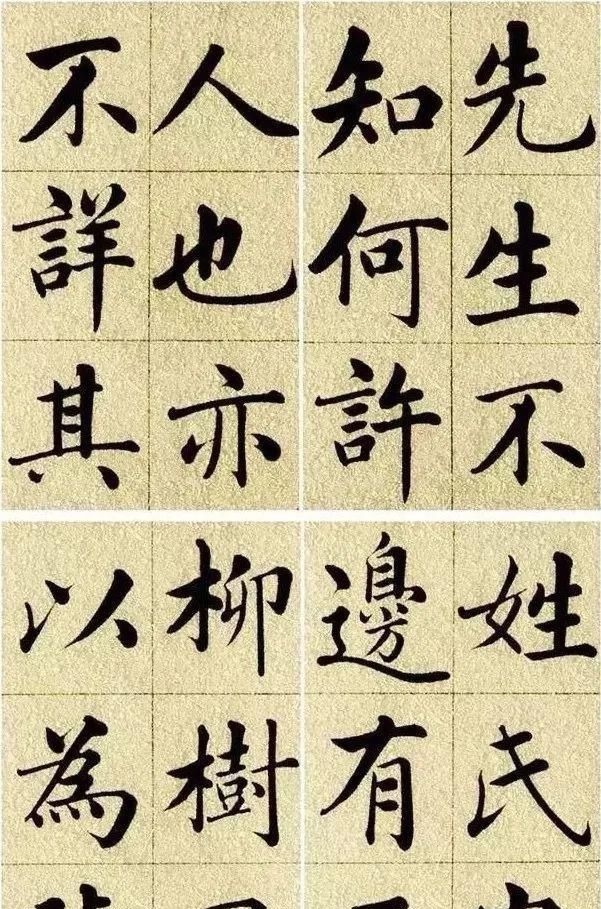 先生不
知何許
人也亦
不詳其
姓氏
邊有
柳樹
以為